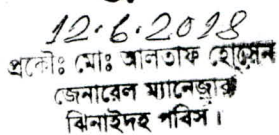 12.6.2018
প্রকৌঃ মোঃ আলতাফ হোসেন
জেনারেল ম্যানেজার
ঝিনাইদহ পবিস।